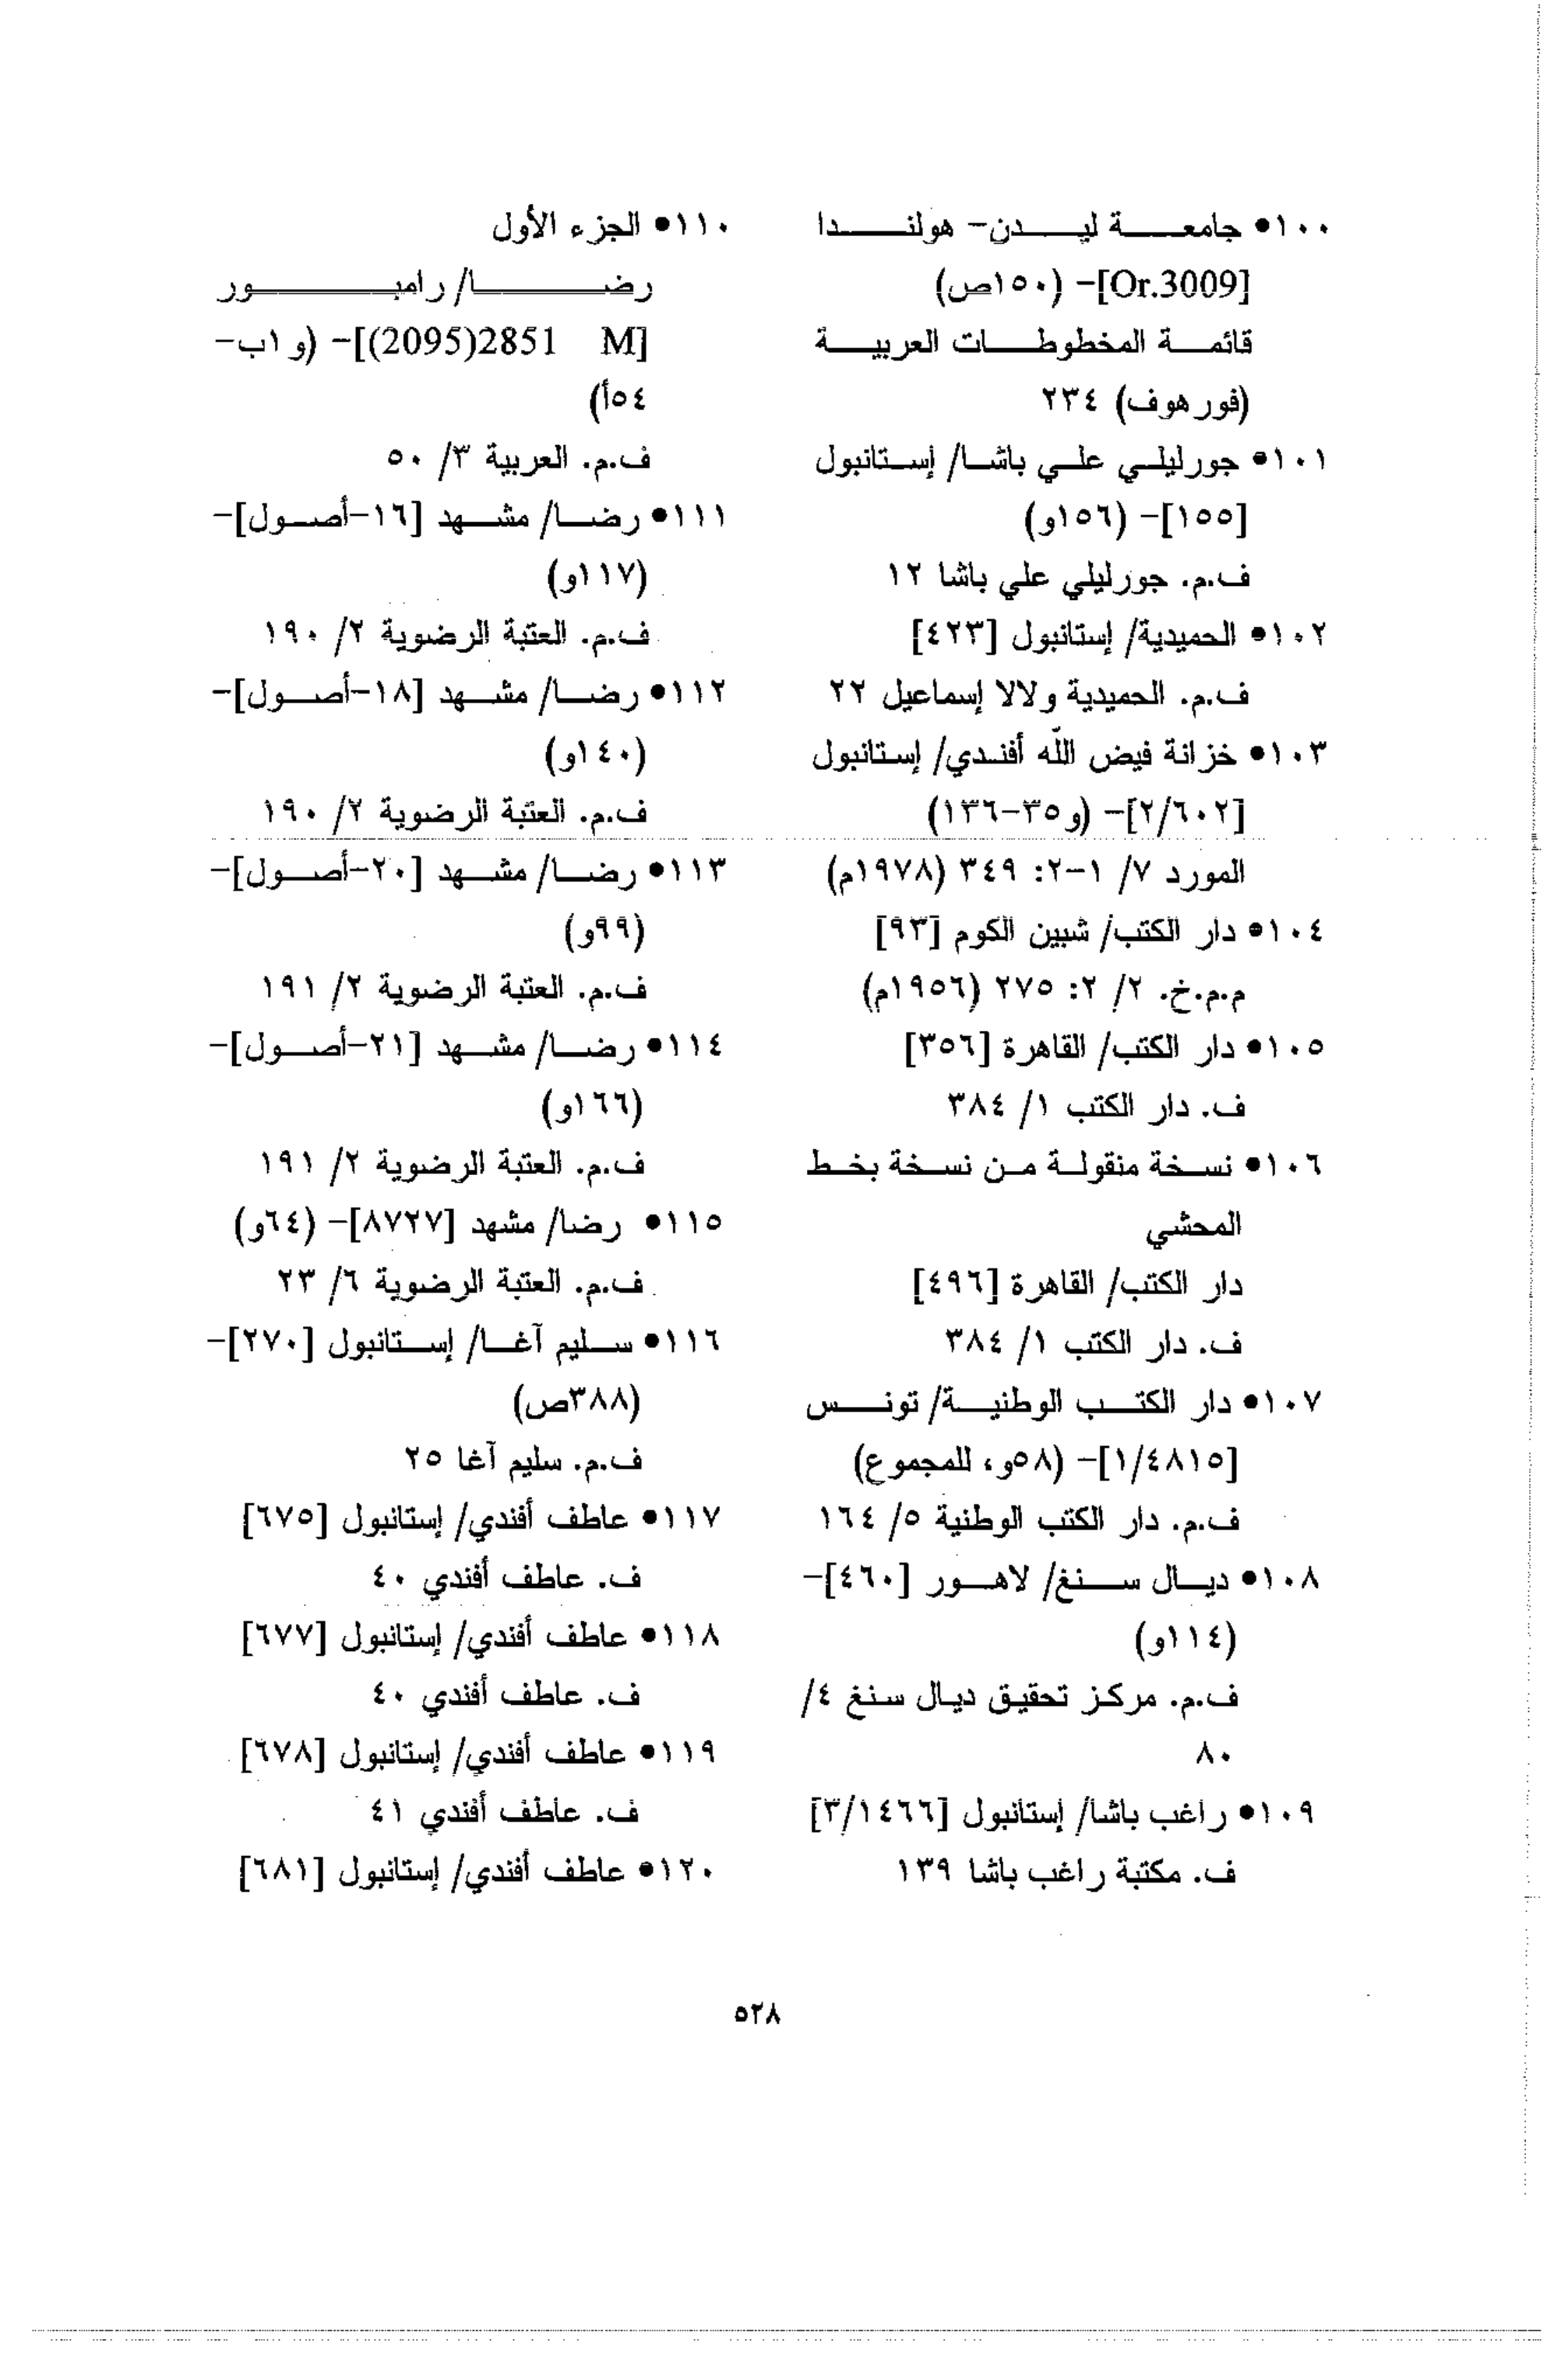 ١٠٠• جامعة ليدن- هولندا
[Or.3009]- (١٥٠ص)
قائمة المخطوطات العربية
(فورهوف) ٢٣٤
١٠١• جورليلي علي باشا/ إستانبول
[١٥٥]- (١٥٦و)
ف.م. جورليلي علي باشا ١٢
١٠٢• الحميدية/ إستانبول [٤٢٣]
ف.م. الحميدية ولالا إسماعيل ٢٢
١٠٣• خزانة فيض الله أفندي/ إستانبول
[٢/٦٠٢]- (و٣٥-١٣٦)
المورد ٧/ ١-٢: ٣٤٩ (١٩٧٨م)
١٠٤• دار الكتب/ شبين الكوم [٩٣]
م.م.خ. ٢/ ٢: ٢٧٥ (١٩٥٦م)
١٠٥• دار الكتب/ القاهرة [٣٥٦]
ف. دار الكتب ١/ ٣٨٤
١٠٦• نسخة منقولة من نسخة بخط
المحشي
دار الكتب/ القاهرة [٤٩٦]
ف. دار الكتب ١/ ٣٨٤
١٠٧• دار الكتب الوطنية/ تونس
[١/٤٨١٥]- (٥٨و، للمجموع)
ف.م. دار الكتب الوطنية ٥/ ١٦٤
١٠٨• ديال سنغ/ لاهور [٤٦٠]-
(١١٤و)
ف.م. مركز تحقيق ديال سنغ ٤/
٨٠
١٠٩• راغب باشا/ إستانبول [٣/١٤٦٦]
ف. مكتبة راغب باشا ١٣٩
١١٠• الجزء الأول
رضا/ رامبور
[M 2851(2095)]- (و١ب-
٥٤أ)
ف.م. العربية ٣/ ٥٠
١١١• رضا/ مشهد [١٦-أصول]-
(١١٧و)
ف.م. العتبة الرضوية ٢/ ١٩٠
١١٢• رضا/ مشهد [١٨-أصول]-
(١٤٠و)
ف.م. العتبة الرضوية ٢/ ١٩٠
١١٣• رضا/ مشهد [٢٠-أصول]-
(٩٩و)
ف.م. العتبة الرضوية ٢/ ١٩١
١١٤• رضا/ مشهد [٢١-أصول]-
(١٦٦و)
ف.م. العتبة الرضوية ٢/ ١٩١
١١٥• رضا/ مشهد [٨٧٢٧]- (٦٤و)
ف.م. العتبة الرضوية ٦/ ٢٣
١١٦• سليم آغا/ إستانبول [٢٧٠]-
(٣٨٨ص)
ف.م. سليم آغا ٢٥
١١٧• عاطف أفندي/ إستانبول [٦٧٥]
ف. عاطف أفندي ٤٠
١١٨• عاطف أفندي/ إستانبول [٦٧٧]
ف. عاطف أفندي ٤٠
١١٩• عاطف أفندي/ إستانبول [٦٧٨]
ف. عاطف أفندي ٤١
١٢٠• عاطف أفندي/ إستانبول [٦٨١]
٥٢٨